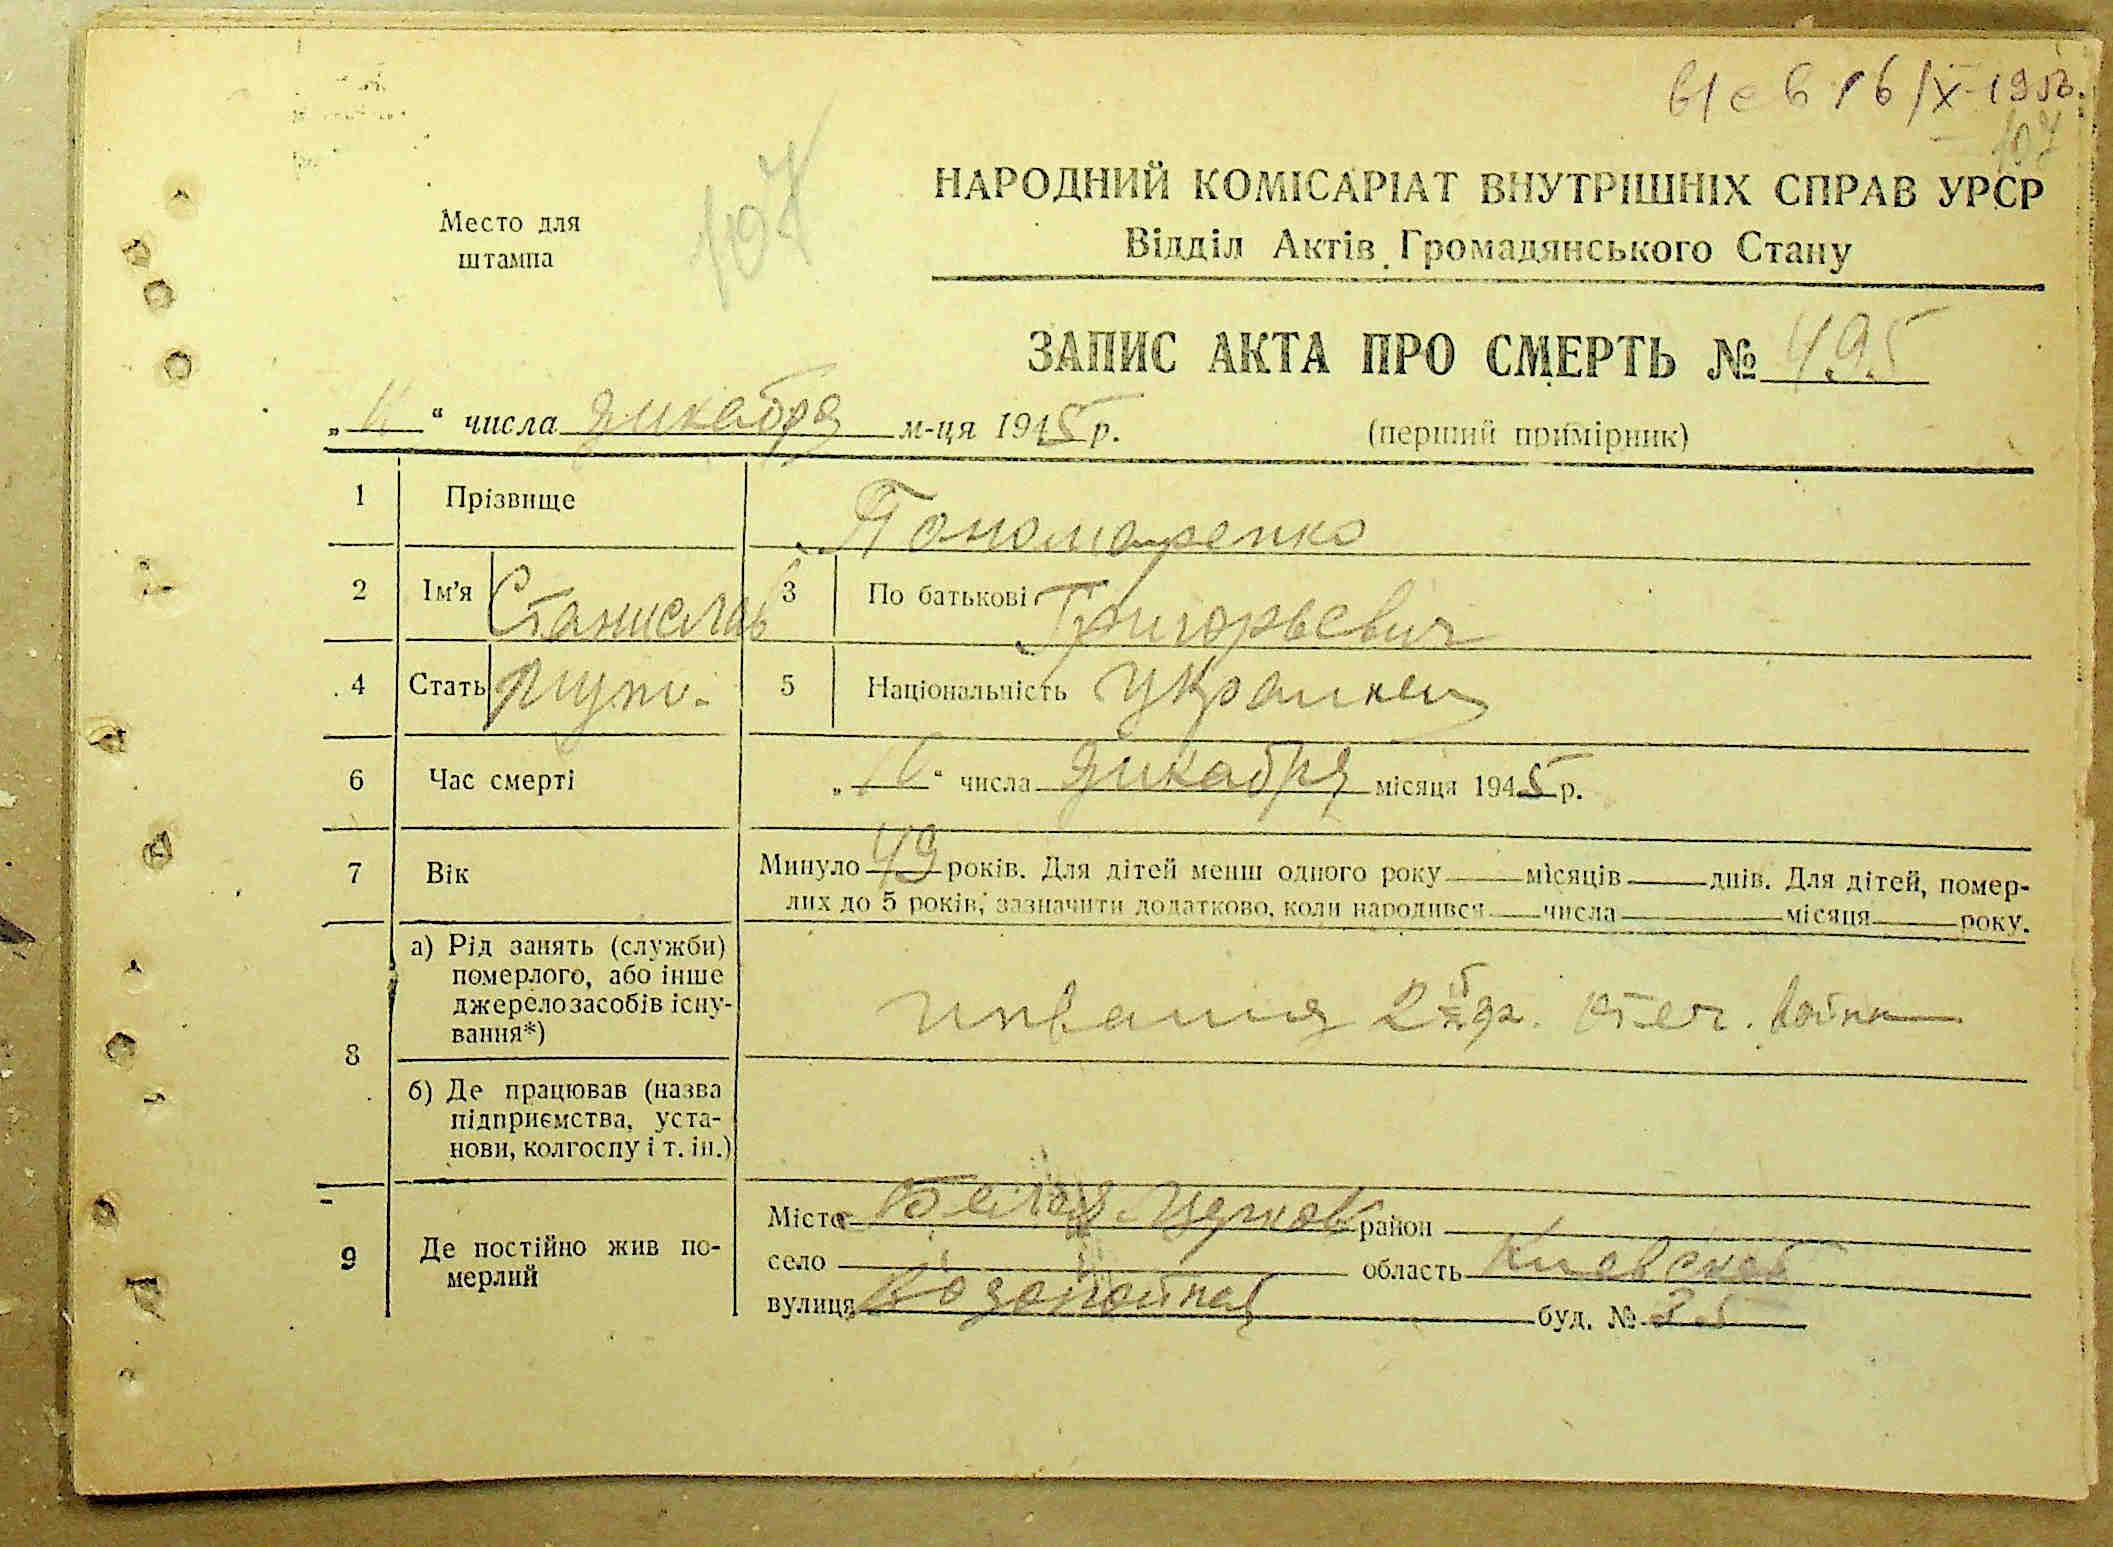 в/с в 16/IX-195
107
Место для
штампа
107
НАРОДНИЙ КОМІСАРІАТ ВНУТРІШНІХ СПРАВ УРСР
Відділ Актів Громадянського Стану
ЗАПИС АКТА ПРО СМЕРТЬ № 495
„11“ числа декабря м-ця 1945 р.
(перший примірник)
1 Прізвище Пономаренко
2 Ім’я Станислав 3 По батькові Григорьевич
4 Стать муж. 5 Національність украинец
6 Час смерті „10“ числа декабря місяця 1945 р.
7 Вік Минуло 49 років. Для дітей менш одного року місяців днів. Для дітей, помер-
лих до 5 років, зазначити додатково, коли народився числа місяця року.
8 а) Рід занять (служби)
померлого, або інше
джерело засобів існу-
вання*)
инвалид 2й гр. отеч. войны
б) Де працював (назва
підприємства, уста-
нови, колгоспу і т. ін.)
9 Де постійно жив по-
мерлий
Місто Белая-Церковь район
село область Киевская
вулиця Водопойная буд. № 35